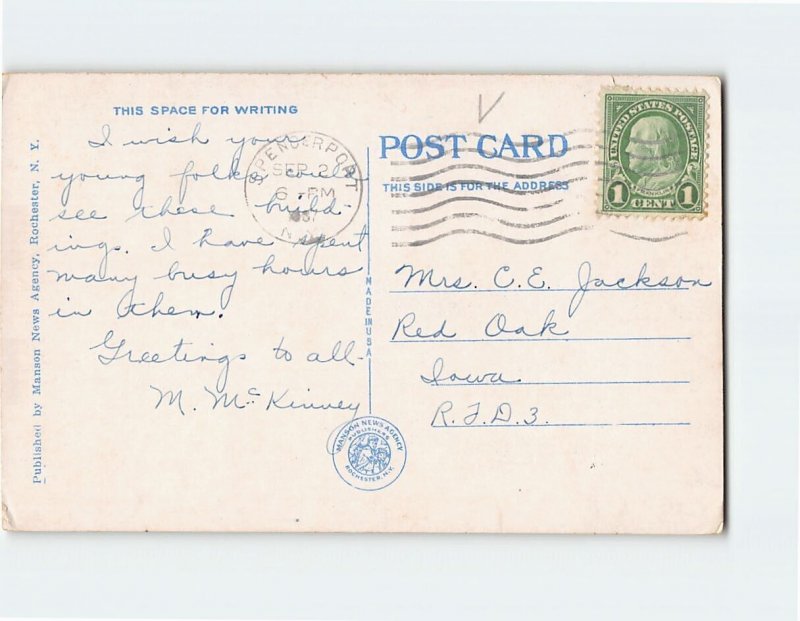 THIS SPACE FOR WRITING
I wish your
young folks could
see these build-
ings. I have spent
many busy hours
in them.
Greetings to all-
M. McKinney
Published by Manson News Agency, Rochester, N. Y.
SPENCERPORT
SEP 2
6 - PM
N.Y.
MADE IN USA
MANSON NEWS AGENCY
PUBLISHERS
ROCHESTER, N.Y.
POST CARD
THIS SIDE IS FOR THE ADDRESS
UNITED STATES POSTAGE
FRANKLIN
1 CENT 1
Mrs. C. E. Jackson
Red Oak
Iowa
R.F.D. 3.